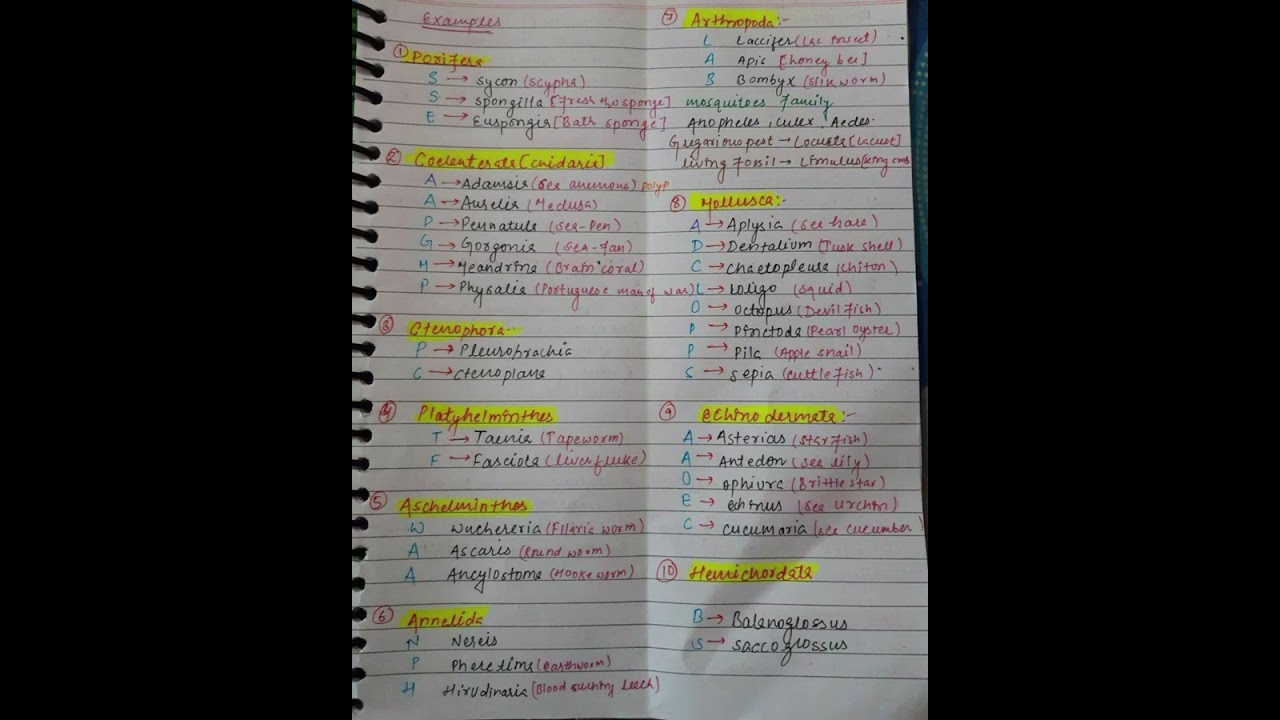 Examples
① Porifera
S → Sycon (Scypha)
S → Spongilla [Fresh H2O sponge]
E → Euspongia [Bath sponge]
② Coelenterata [Cnidaria]
A → Adamsia (Sea anemone) polyp
A → Aurelia (Medusa)
P → Pennatula (Sea-Pen)
G → Gorgonia (Sea-Fan)
M → Meandrina (Brain coral)
P → Physalia (Portuguese man of war)
③ Ctenophora:-
P → Pleurobrachia
C → Ctenoplana
④ Platyhelminthes
T → Taenia (Tapeworm)
F → Fasciola (liver fluke)
⑤ Aschelminthes
W Wuchereria (Filaria worm)
A Ascaris (Round worm)
A Ancylostoma (Hooke worm)
⑥ Annelida
N Nereis
P Pheretima (earthworm)
H Hirudinaria [Blood sucking leech]
⑦ Arthropoda:-
L Laccifer (Lac insect)
A Apis [honey bee]
B Bombyx (Silk worm)
mosquitoes family
Anopheles, Culex, Aedes.
Gregarious pest → Locusta [Locust]
living fossil → Limulus [king crab
⑧ Mollusca:-
A → Aplysia (Sea hare)
D → Dentalium (Tusk shell)
C → Chaetopleura (Chiton)
L → Loligo (Squid)
O → Octopus (Devil fish)
P → Pinctada (Pearl oyster)
P → Pila (Apple snail)
S → Sepia (Cuttle fish)
⑨ Echinodermata:-
A → Asterias (Star fish)
A → Antedon (Sea lily)
O → Ophiura (Brittle star)
E → Echinus (Sea Urchin)
C → Cucumaria (Sea cucumber)
⑩ Hemichordata
B → Balanoglossus
S → Saccoglossus